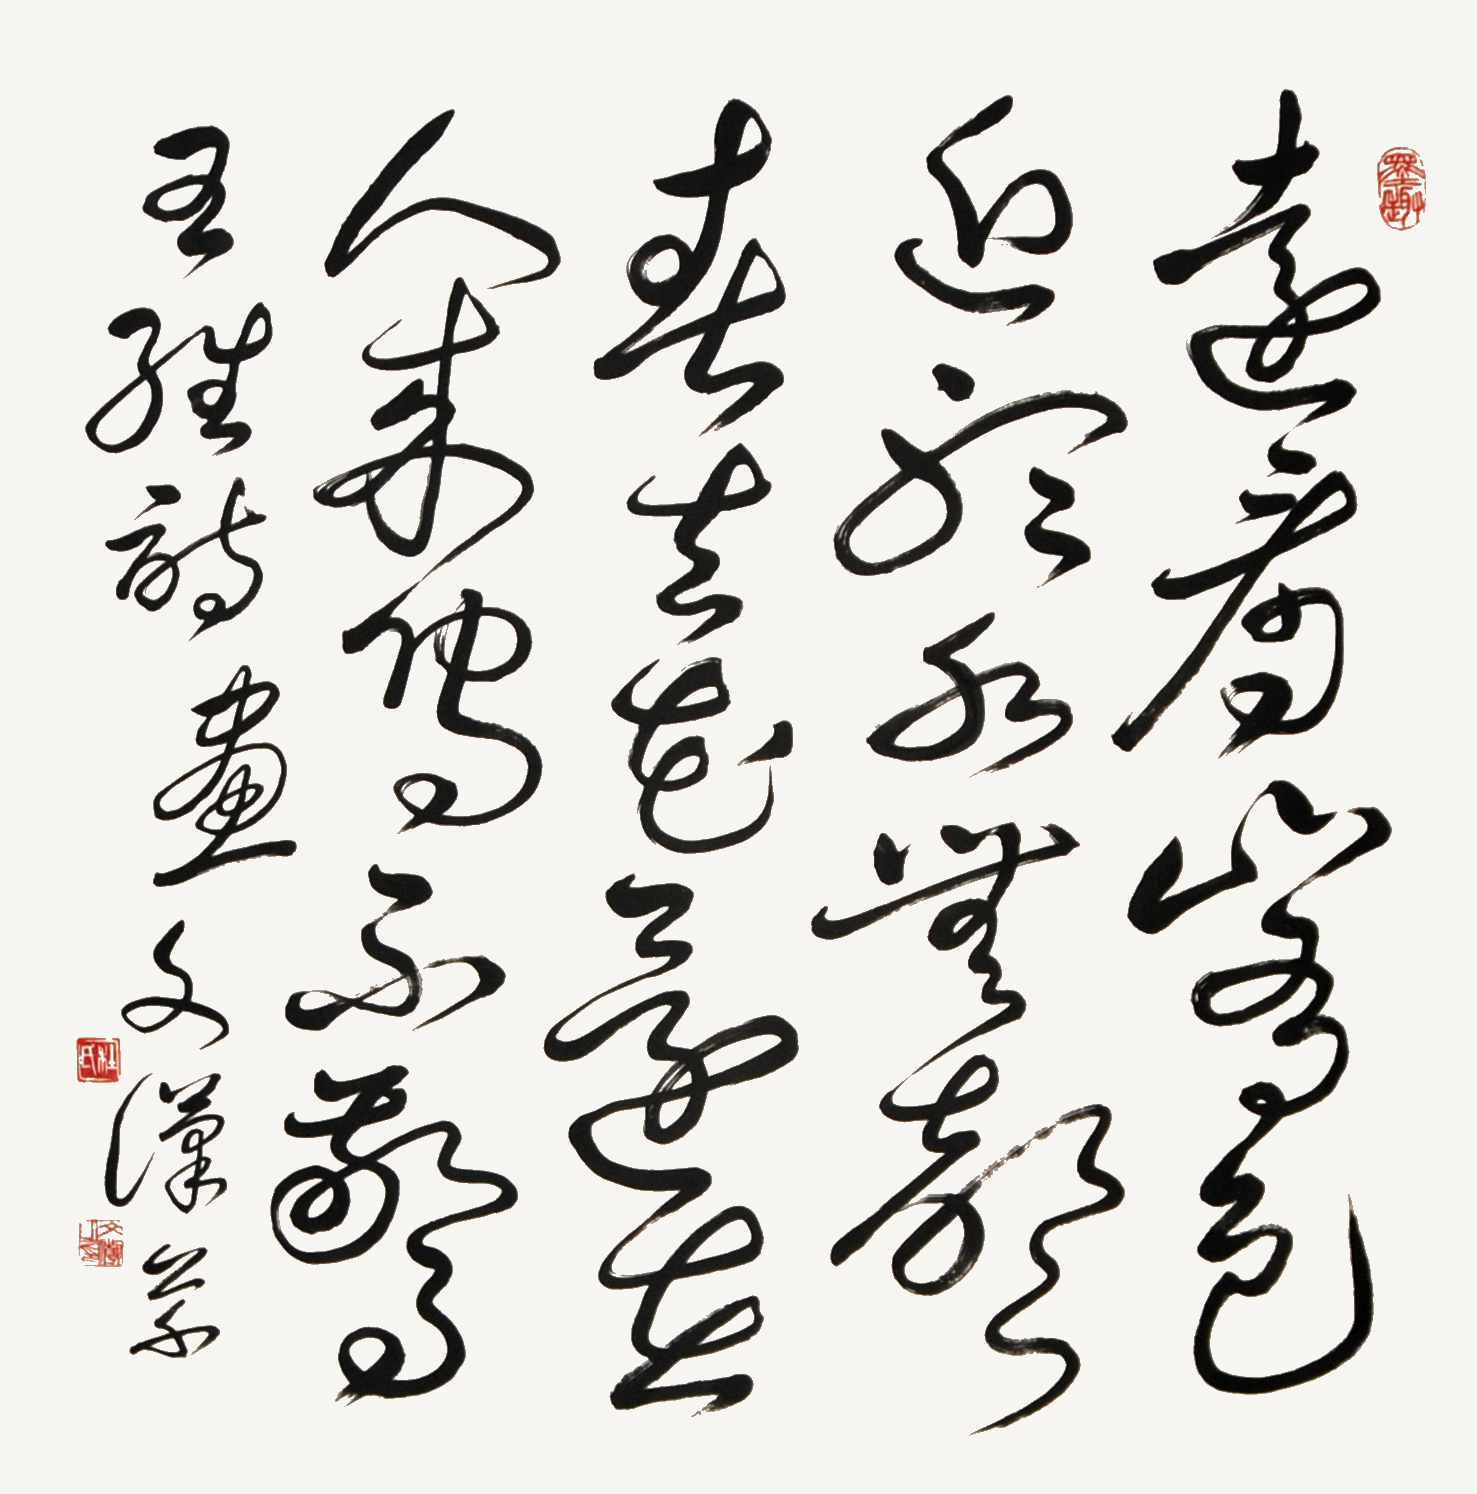 墨趣
遠看山有色
近聽水無聲
春去花還在
人來鳥不驚
王維詩畫 文漢
杜氏